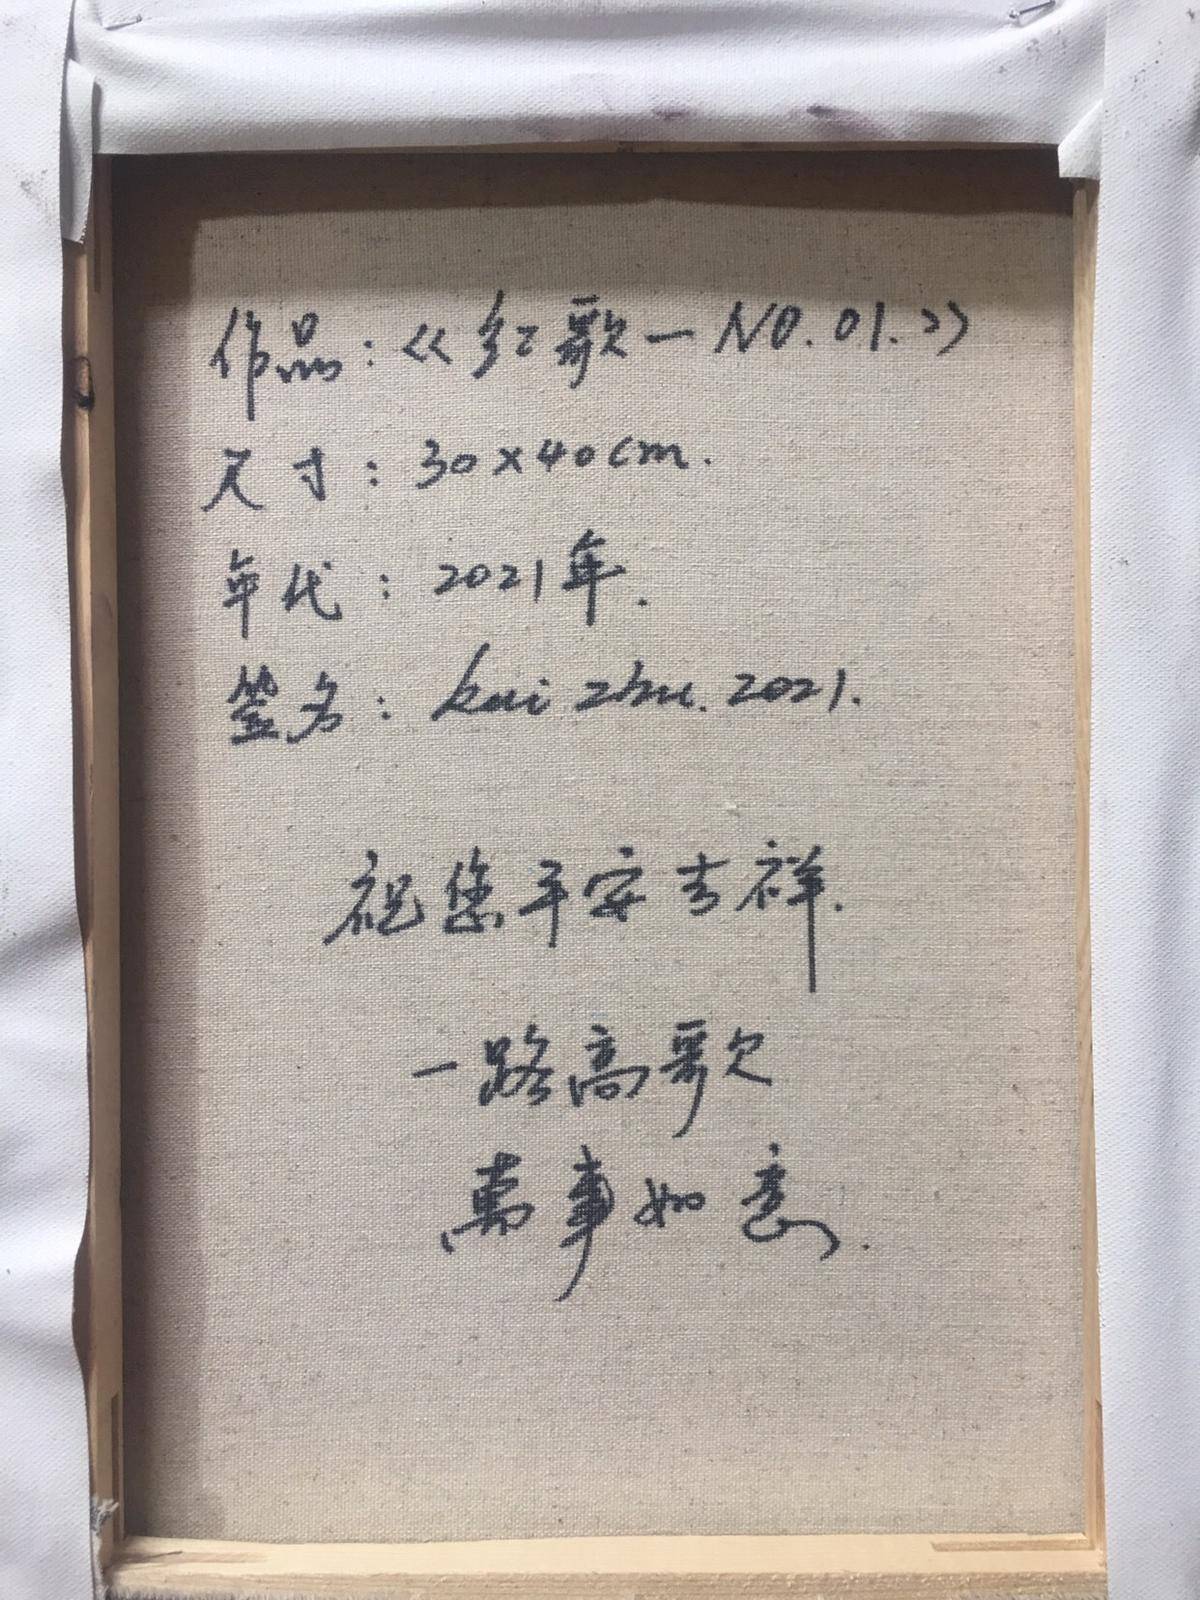 作品：《红歌一NO.01.》
尺寸：30×40cm.
年代：2021年.
签名：kai zhu. 2021.
祝您平安吉祥.
一路高歌
萬事如意.